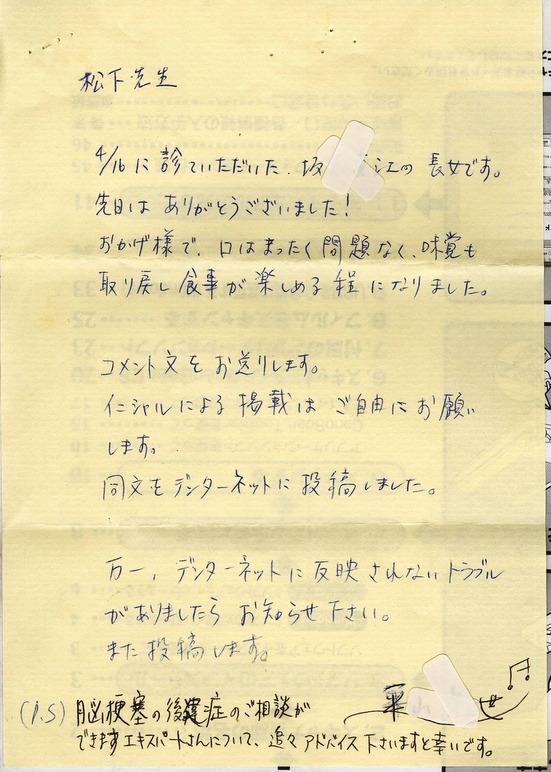 松下先生
4/16に診ていただいた、坂 江の長女です。
先日はありがとうございました!
おかげ様で、口はまったく問題なく、味覚も
取り戻し食事が楽しめる程になりました。
コメント文をお送りします。
イニシャルによる掲載はご自由にお願い
します。
同文をデンターネットに投稿しました。
万一、デンターネットに反映されないトラブル
がありましたらお知らせ下さい。
また投稿します。
(P.S) 脳梗塞の後遺症のご相談が
できますエキスパートさんについて、追々アドバイス下さいますと幸いです。